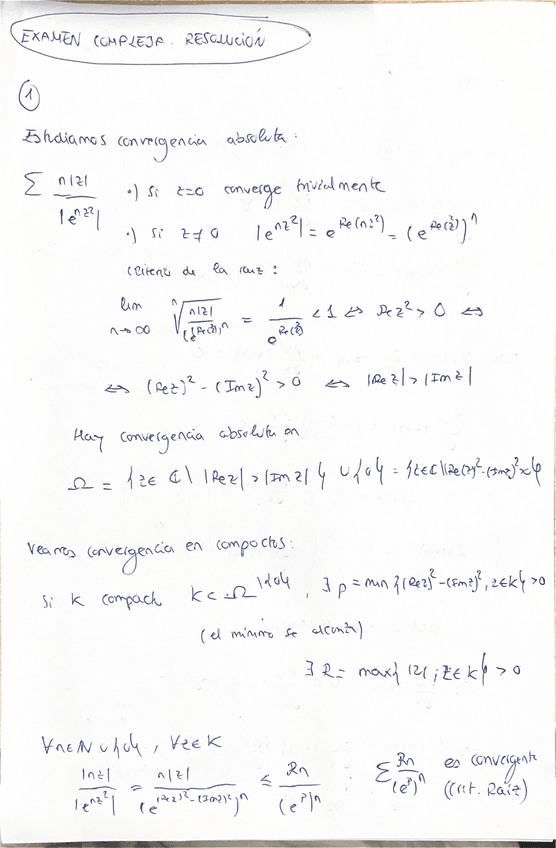 EXAMEN COMPLEJA. RESOLUCIÓN
1
Estudiamos convergencia absoluta:
Σ n|z| / |e^{nz²}| ·) Si z=0 converge trivialmente
·) Si z≠0 |e^{nz²}| = e^{Re(nz²)} = (e^{Re(z²)})^n
criterio de la raíz:
lim n→∞ ⁿ√(n|z| / (e^{Re(z²)})^n) = 1 / e^{Re(z²)} < 1 ⇔ Re z² > 0 ⇔
⇔ (Re z)² - (Im z)² > 0 ⇔ |Re z| > |Im z|
Hay convergencia absoluta en
Ω = {z∈ℂ \ |Re z| > |Im z|} ∪ {0} = {z∈ℂ \ (Re(z))² - (Im z)² > }
Veamos convergencia en compactos:
Si K compact K ⊂ Ω\{0}, ∃ ρ = min{(Re z)² - (Im z)², z∈K} > 0
(el mínimo se alcanza)
∃ R = max{|z| ; z∈K} > 0
∀n∈ℕ∪{0}, ∀z∈K
|nz| / |e^{nz²}| = n|z| / (e^{(Re z)² - (Im z)²})^n ≤ Rn / (e^ρ)^n ; Σ Rn / (e^ρ)^n es convergente
(Crit. Raíz)